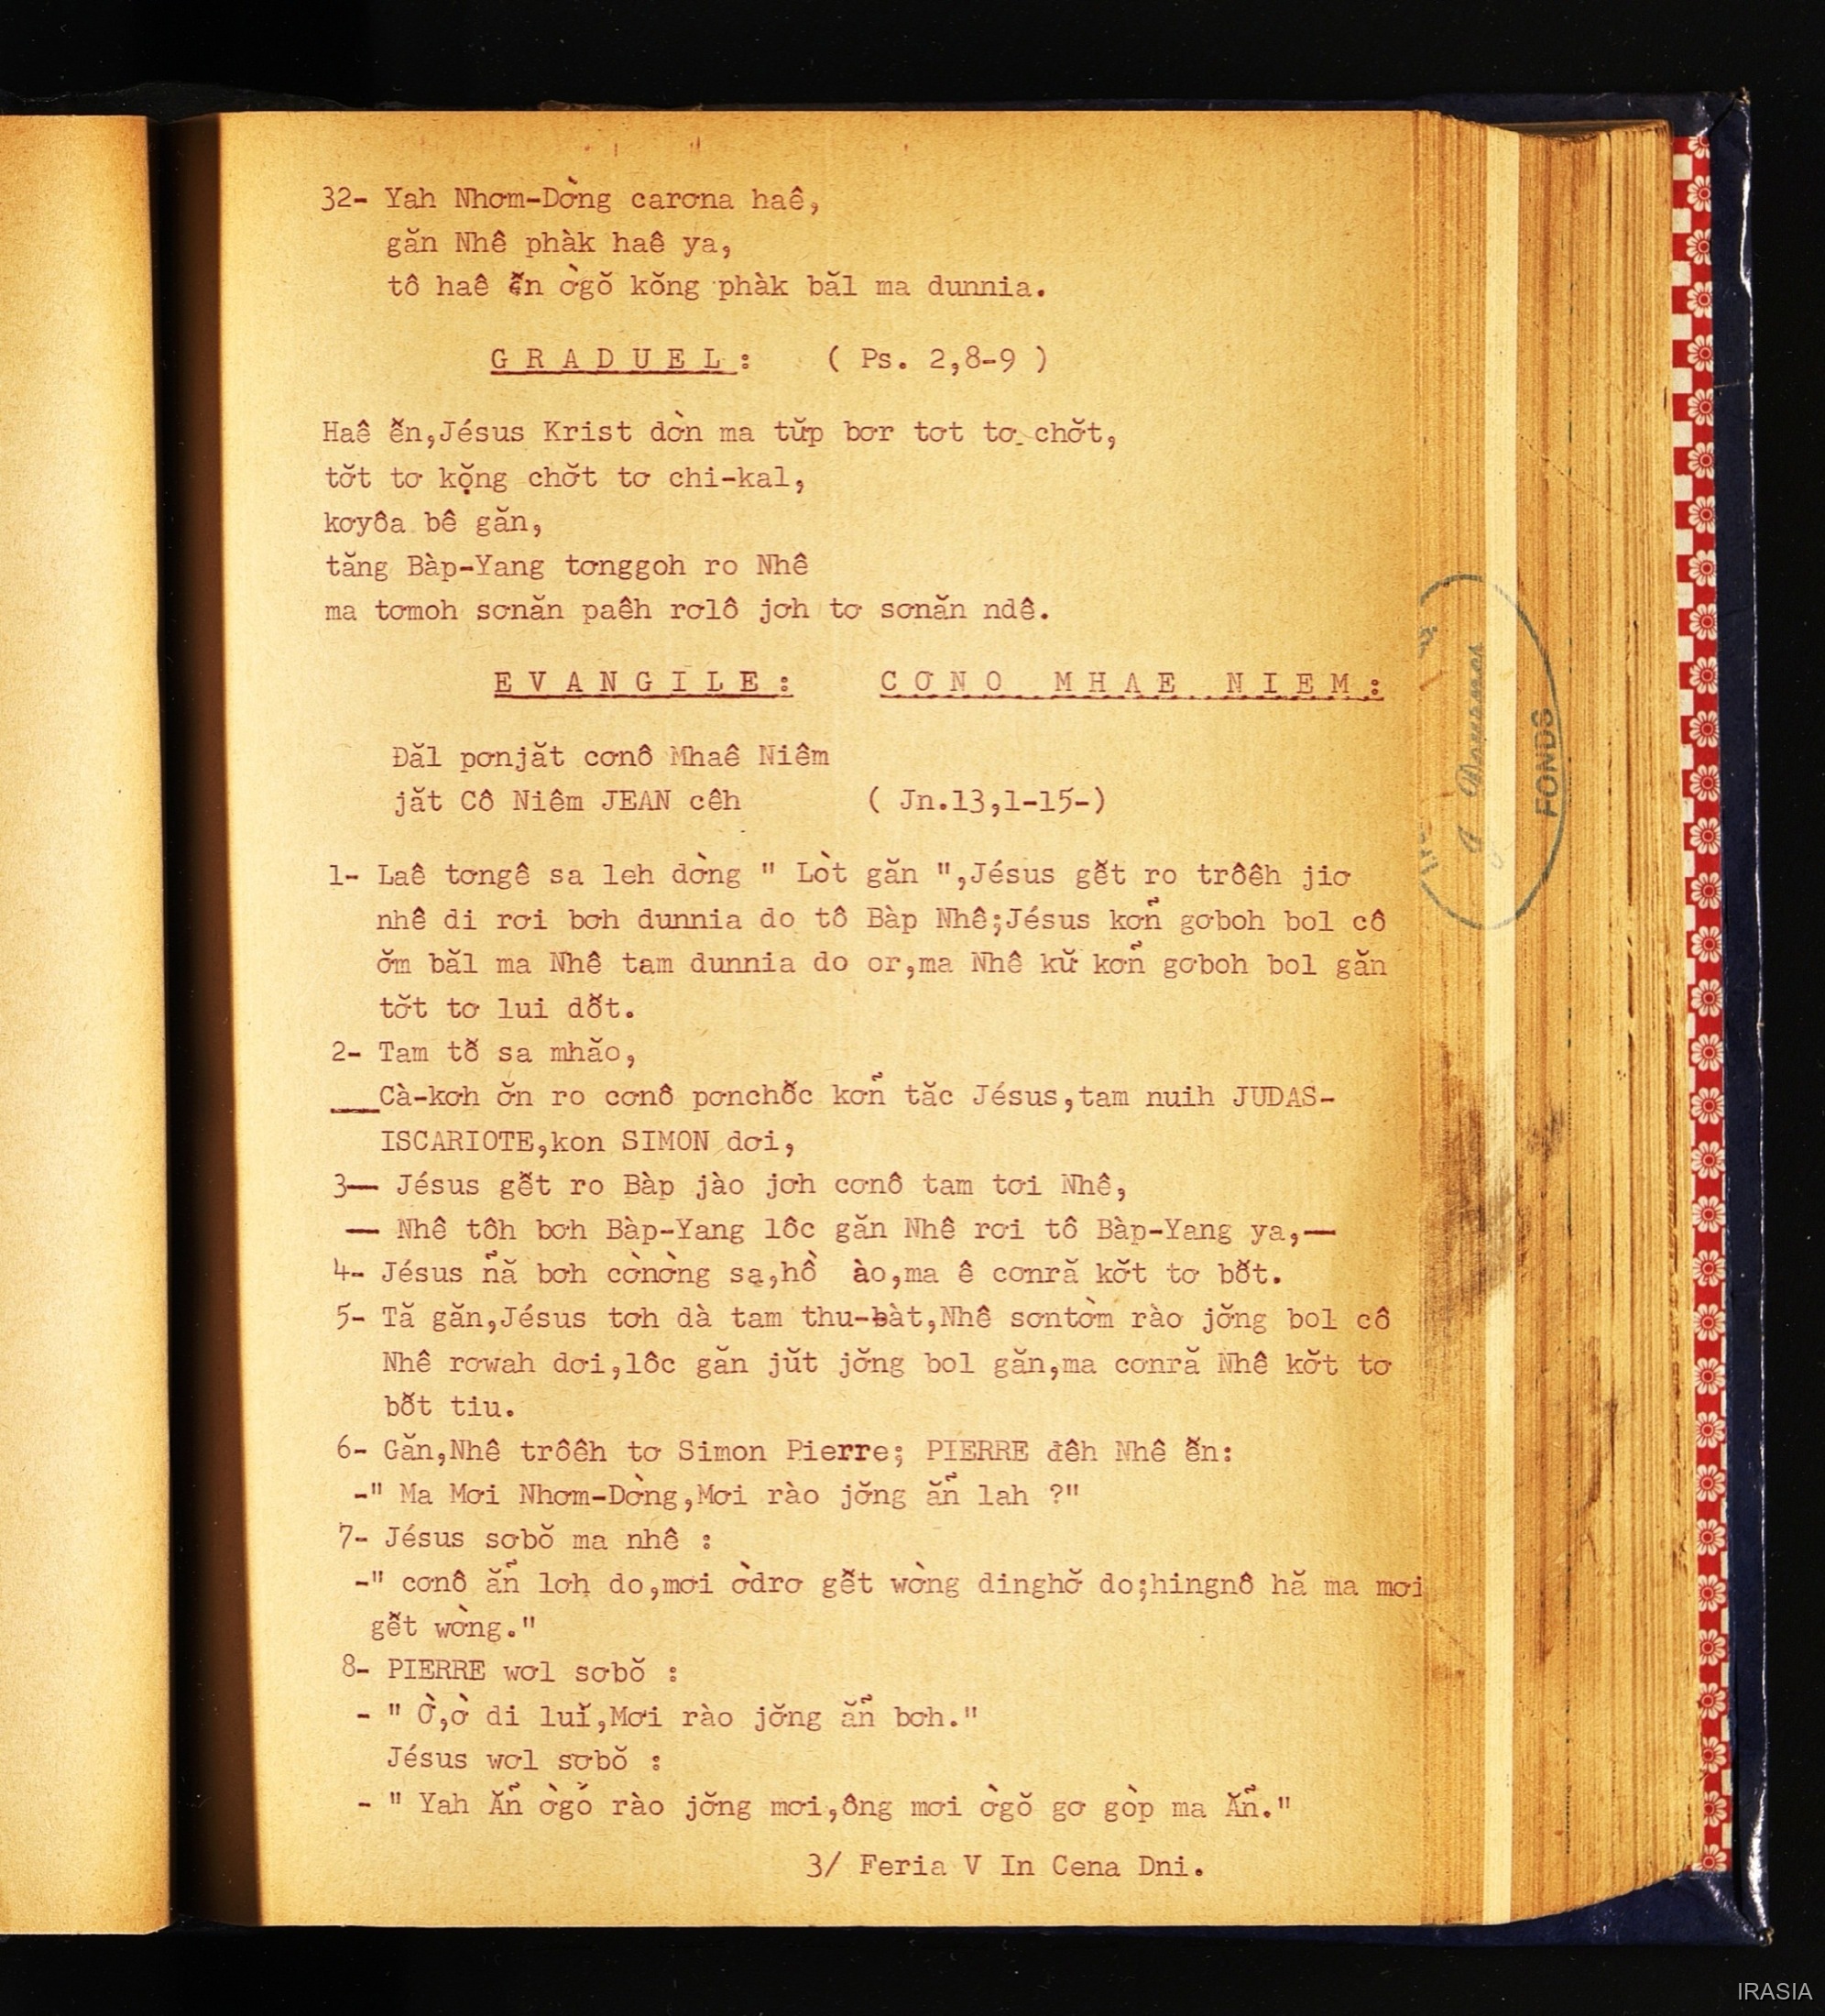 32- Yah Nhơm-Dờng carơna haê,
găn Nhê phàk haê ya,
tô haê ê̆n ờgŏ kŏng phàk băl ma dunnia.
G R A D U E L : ( Ps. 2,8-9 )
Haê ê̆n,Jésus Krist dờn ma tŭp bơr tơt tơ chơ̆t,
tơ̆t tơ kọ̆ng chơ̆t tơ chi-kal,
kơyôa bê găn,
tăng Bàp-Yang tơnggơh ro Nhê
ma tơmoh sơnăn paêh rơlô jơh tơ sơnăn ndê.
E V A N G I L E : C Ơ N O M H A E N I E M :
Đăl pơnjăt cơnô Mhaê Niêm
jăt Cô Niêm JEAN cêh ( Jn.13,1-15-)
1- Laê tơngê sa leh dờng " Lòt găn ",Jésus gê̆t ro trôêh jiơ
nhê di rơi bơh dunnia do tô Bàp Nhê;Jésus kơn̉ gơboh bol cô
ơ̆m băl ma Nhê tam dunnia do or,ma Nhê kư̆ kơn̉ gơboh bol găn
tơ̆t tơ lui dô̆t.
2- Tam tô̆ sa mhăo,
Cà-kơh ơ̆n ro cơnô pơnchô̆c kơn̉ tăc Jésus,tam nuih JUDAS-
ISCARIOTE,kon SIMON dơi,
3— Jésus gê̆t ro Bàp jào jơh cơnô tam tơi Nhê,
— Nhê tôh bơh Bàp-Yang lôc găn Nhê rơi tô Bàp-Yang ya,—
4- Jésus n̉ă bơh cờnờng sạ,hồ ào,ma ê cơnră kơ̆t tơ bô̆t.
5- Tă găn,Jésus tơh dà tam thu-bàt,Nhê sơntờm rào jơ̆ng bol cô
Nhê rơwah dơi,lôc găn jŭt jơ̆ng bol găn,ma cơnră Nhê kơ̆t tơ
bô̆t tiu.
6- Găn,Nhê trôêh tơ Simon Pierre; PIERRE đêh Nhê ê̆n:
-" Ma Mơi Nhơm-Dờng,Mơi rào jơ̆ng ăn̉ lah ?"
7- Jésus sơbŏ ma nhê :
-" cơnô ăn̉ lơh do,mơi ờdrơ gê̆t wờng dinghơ̆ do;hingnô hă ma mơi
gê̆t wờng."
8- PIERRE wơl sơbŏ :
- " Ờ,ờ di luĭ,Mơi rào jơ̆ng ăn̉ bơh."
Jésus wơl sơbŏ :
- " Yah Ăn̉ ờgŏ rào jơ̆ng mơi,ông mơi ờgŏ gơ gòp ma Ăn̉."
3/ Feria V In Cena Dni.
FONDS
IRASIA